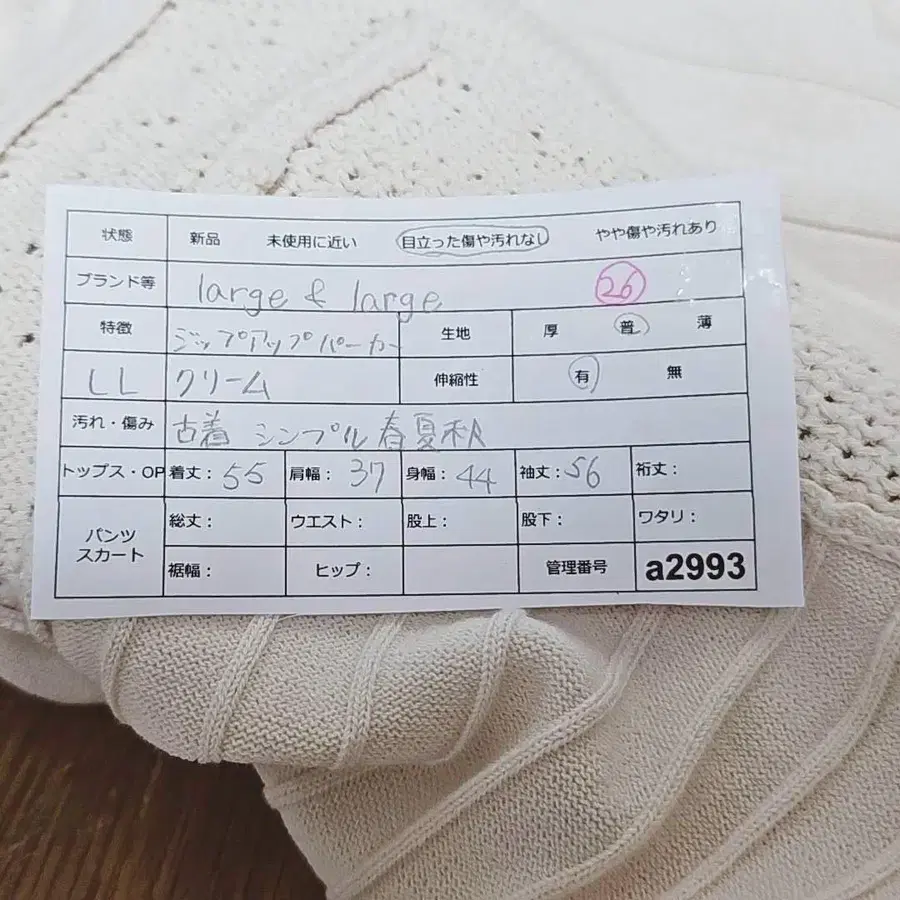 状態 新品 未使用に近い 目立った傷や汚れなし やや傷や汚れあり
ブランド等 large & large 26
特徴 ジップアップパーカー 生地 厚 普 薄
LL クリーム 伸縮性 有 無
汚れ・傷み 古着 シンプル 春夏秋
トップス・OP 着丈: 55 肩幅: 37 身幅: 44 袖丈: 56 裄丈:
パンツ スカート 総丈: ウエスト: 股上: 股下: ワタリ:
裾幅: ヒップ: 管理番号 a2993